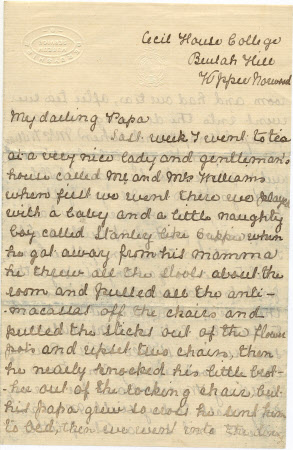 Cecil House College
Beulah Hill
Upper Norwood
My darling Papa
Last week I went to tea
at a very nice lady and gentleman's
house called Mr and Mrs Williams
when first we went there we played
with a baby and a little naughty
boy called Stanley like when
he got away from his mamma
he threw all the stools about the
room and pulled all the anti-
macassar off the chairs and
pulled the sticks out of the flower
pots and upset two chairs, then
he nearly knocked his little brot-
her out of the rocking chair, but
his Papa grew so cross he sent him
to bed, then we went into the